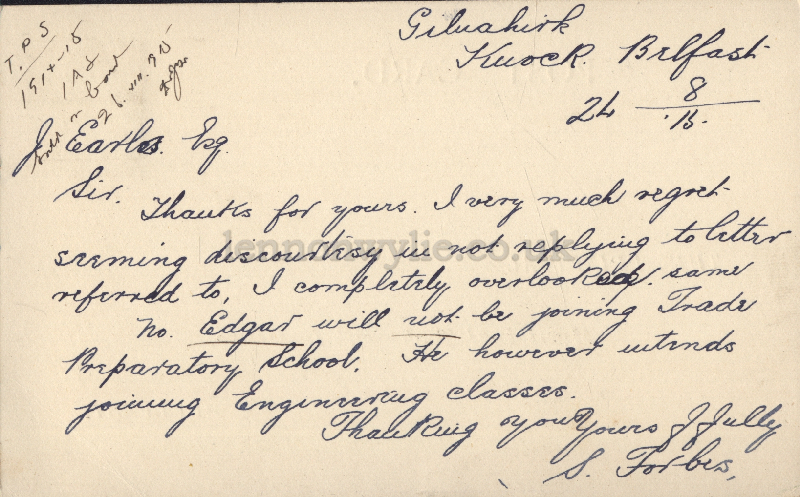 Gilnahirk
Knock. Belfast
24 8/'15.
T.P.S
1914-15
1A2
26.VIII.915
J Earls. Esq.
Sir.
Thanks for yours. I very much regret
seeming discourtesy in not replying to letter
referred to, I completely overlooked. same
No. Edgar will not be joining Trade
Preparatory School. He however intends
joining Engineering classes.
Thanking you Yours ffully
S. Forbes,
lennonwylie.co.uk